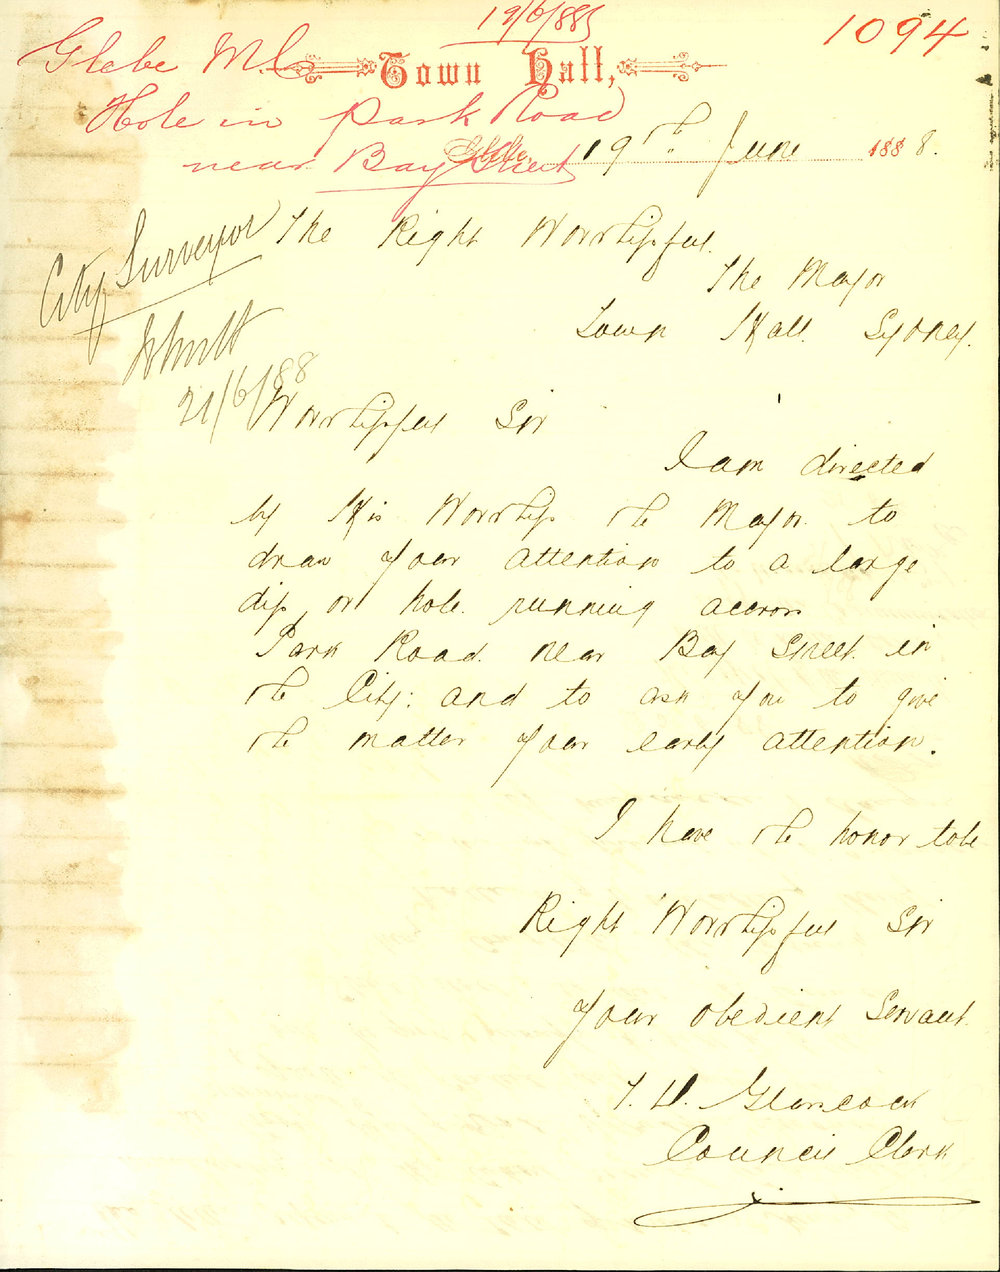 19/6/1888
1094
Glebe M.C.
Town Hall,
Hole in Park Road
near Bay Street
Glebe 19th June 1888.
City Surveyor
21/6/88
The Right Worshipful
The Mayor
Town Hall Sydney.
Worshipful Sir
I am directed
by His Worship the Mayor to
draw your attention to a large
dip, or hole running accross
Park Road near Bay Street in
the City: and to ask you to give
the matter your early attention.
I have the honor to be
Right Worshipful Sir
Your obedient Servant
T. H. Glancock
Council Clerk